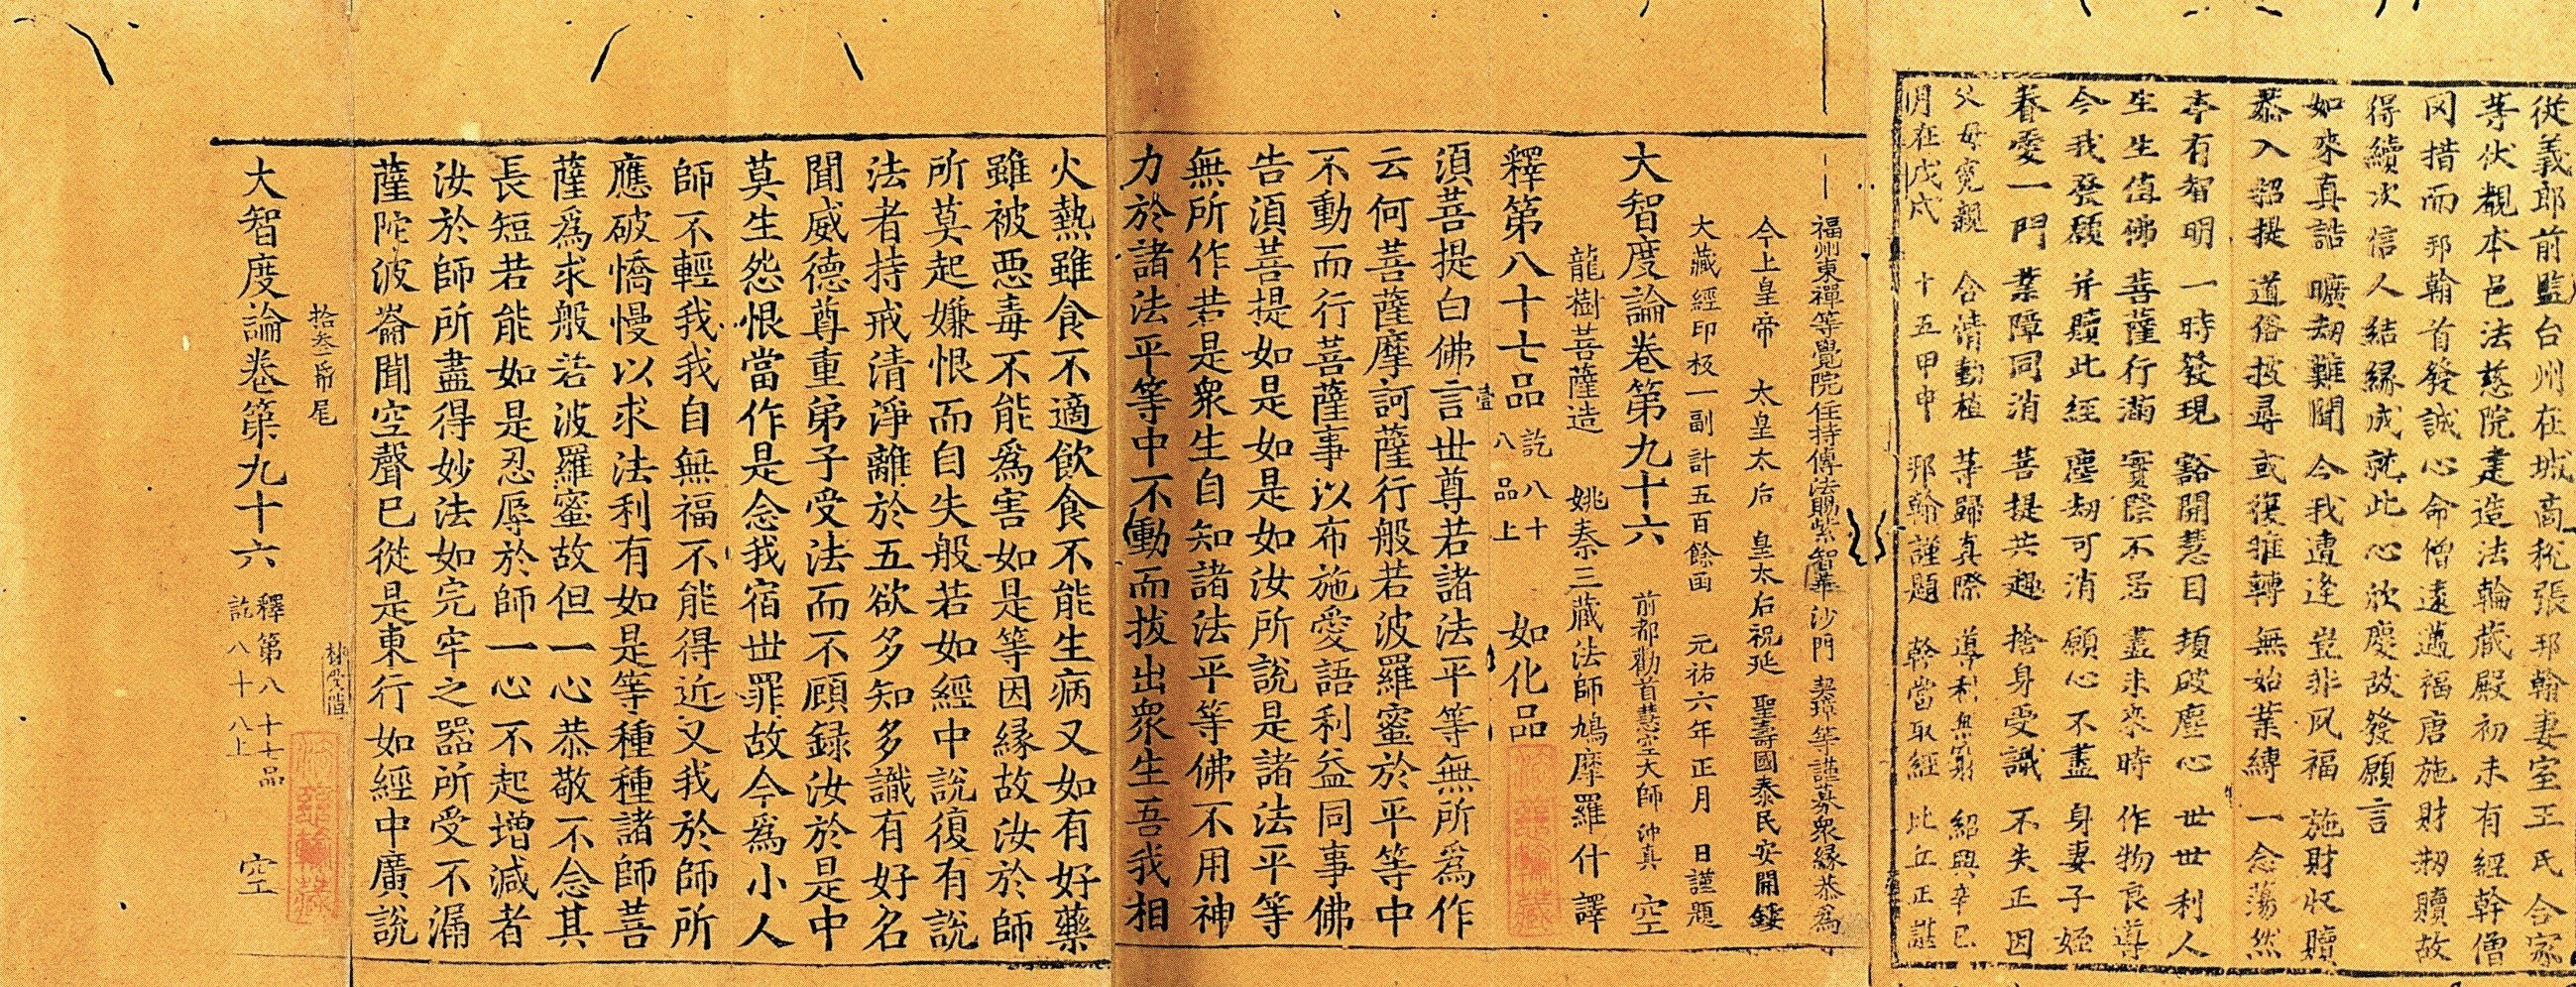 從義郎前監台州在城商稅張邦翰妻室王氏合家
等伏覩本邑法慈院建造法輪藏殿初未有經幹僧
罔措而邦翰首發誠心命僧遠邁福唐施財揂贖故
得續次信人結緣成就此心欣慶故發願言
如來真誥 曠劫難聞 今我遭逢 豈非夙福 施財收贖
恭入招提 道俗披尋 或復推轉 無始業縛 一念蕩然
李有智明 一時發現 豁開慧目 頓破塵心 世世利人
生生值佛 菩薩行滿 實際不居 盡未來時 作物良導
今我發願 并贖此經 塵劫可消 願心不盡 身妻子姪
眷愛一門 業障同消 菩提共趣 捨身受識 不失正因
父母冤親 含情動植 等歸真際 導利無窮 紹興辛巳
月在戊戌 十五甲申 邦翰謹題 幹當取經 比丘正謹
福州東禪等覺院住持傳法賜紫智華沙門 契璋等謹募衆緣恭爲
今上皇帝 太皇太后 皇太后祝延 聖壽國泰民安開鏤
大藏經印板一副計五百餘函 元祐六年正月 日謹題
大智度論卷第九十六 前都勸首慧空大師沖真 空
龍樹菩薩造 姚秦三藏法師鳩摩羅什譯
釋第八十七品訖八十八品上 如化品
壹
湏菩提白佛言世尊若諸法平等無所爲作
云何菩薩摩訶薩行般若波羅蜜於平等中
不動而行菩薩事以布施愛語利益同事佛
告湏菩提如是如是如汝所說是諸法平等
無所作若是衆生自知諸法平等佛不用神
力於諸法平等中不動而拔出衆生吾我相
火熱雖食不適飲食不能生病又如有好藥
雖被惡毒不能爲害如是等因緣故汝於師
所莫起嫌恨而自失般若如經中說復有說
法者持戒清淨離於五欲多知多識有好名
聞威德尊重弟子受法而不顧録汝於是中
莫生怨恨當作是念我宿世罪故今爲小人
師不輕我我自無福不能得近又我於師所
應破憍慢以求法利有如是等種種諸師菩
薩爲求般若波羅蜜故但一心恭敬不念其
長短若能如是忍辱於師一心不起增減者
汝於師所盡得妙法如完牢之器所受不漏
薩陀波崙聞空聲已從是東行如經中廣說
拾叁帋尾
大智度論卷第九十六 釋第八十七品訖八十八上 空
法慈輪藏